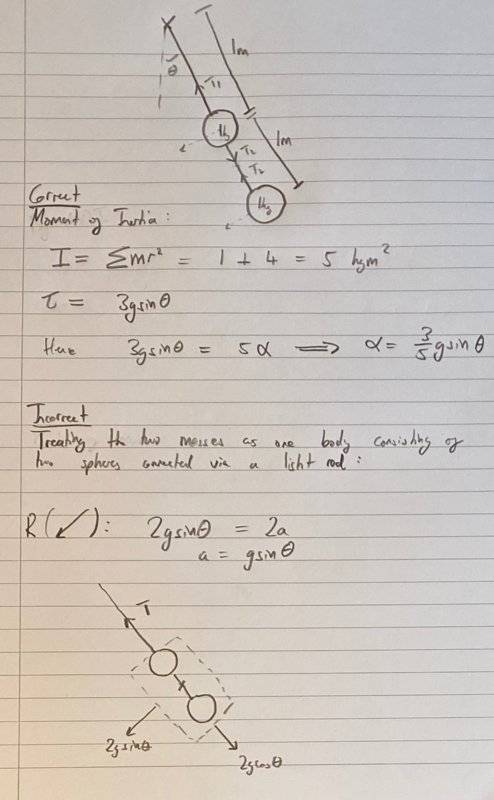 1m
θ
T1
1kg
1m
T2
T2
1kg
Correct
Moment of Inertia:
I = ∑mr² = 1 + 4 = 5 kgm²
τ = 3gsinθ
Hence 3gsinθ = 5α ⟹ α = 3/5 gsinθ
Incorrect
Treating the two masses as one body consisting of
two spheres connected via a light rod:
R(↙): 2gsinθ = 2a
a = gsinθ
T
2gsinθ
2gcosθ